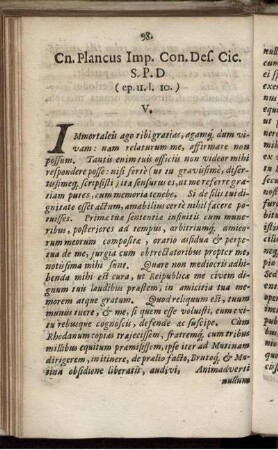 98.
Cn. Plancus Imp. Con. Des. Cic.
S. P. D
( ep. 11. l. 10. )
V.
IMmortaleis ago tibi gratias, agamq́; dum vi-
vam: nam relaturum me, affirmare non
possum. Tantis enim tuis officiis non videor mihi
respondere posse: nisi fortè (ut tu gravissimè, diser-
tissimeq́; scripsisti) ita sensurus es, ut me referre gra-
tiam putes, cum memoria tenebo. Si de filii tui di-
gnitate esset actum, amabilius certè nihil facere po-
tuisses. Primæ tuæ sententiæ infinitis cum mune-
ribus, posteriores ad tempus, arbitriumq́; amico-
rum meorum compositæ, oratio assidua & perpe-
tua de me, jurgia cum obtrectatoribus propter me,
notissima mihi sunt. Quare non mediocris adhi-
benda mihi est cura, ut Reipublicæ me civem di-
gnum tuis laudibus præstem, in amicitia tua me-
morem atque gratum. Quod reliquum est, tuum
munus tuere, & me, si quem esse voluisti, eum ex-
itu rebusque cognoscis, defende ac suscipe. Cùm
Rhodanum copias trajecissem, fratremq́; cum tribus
millibus equitum præmisissem, ipse iter ad Mutinam
dirigerem, in itinere, de prælio facto, Brutoq́; & Mu-
tina obsidione liberatis, audivi, Animadverti
nullum